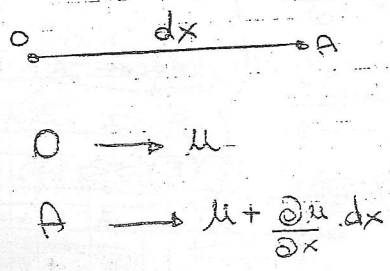 O dx A
O → u
A → u + ∂u/∂x . dx